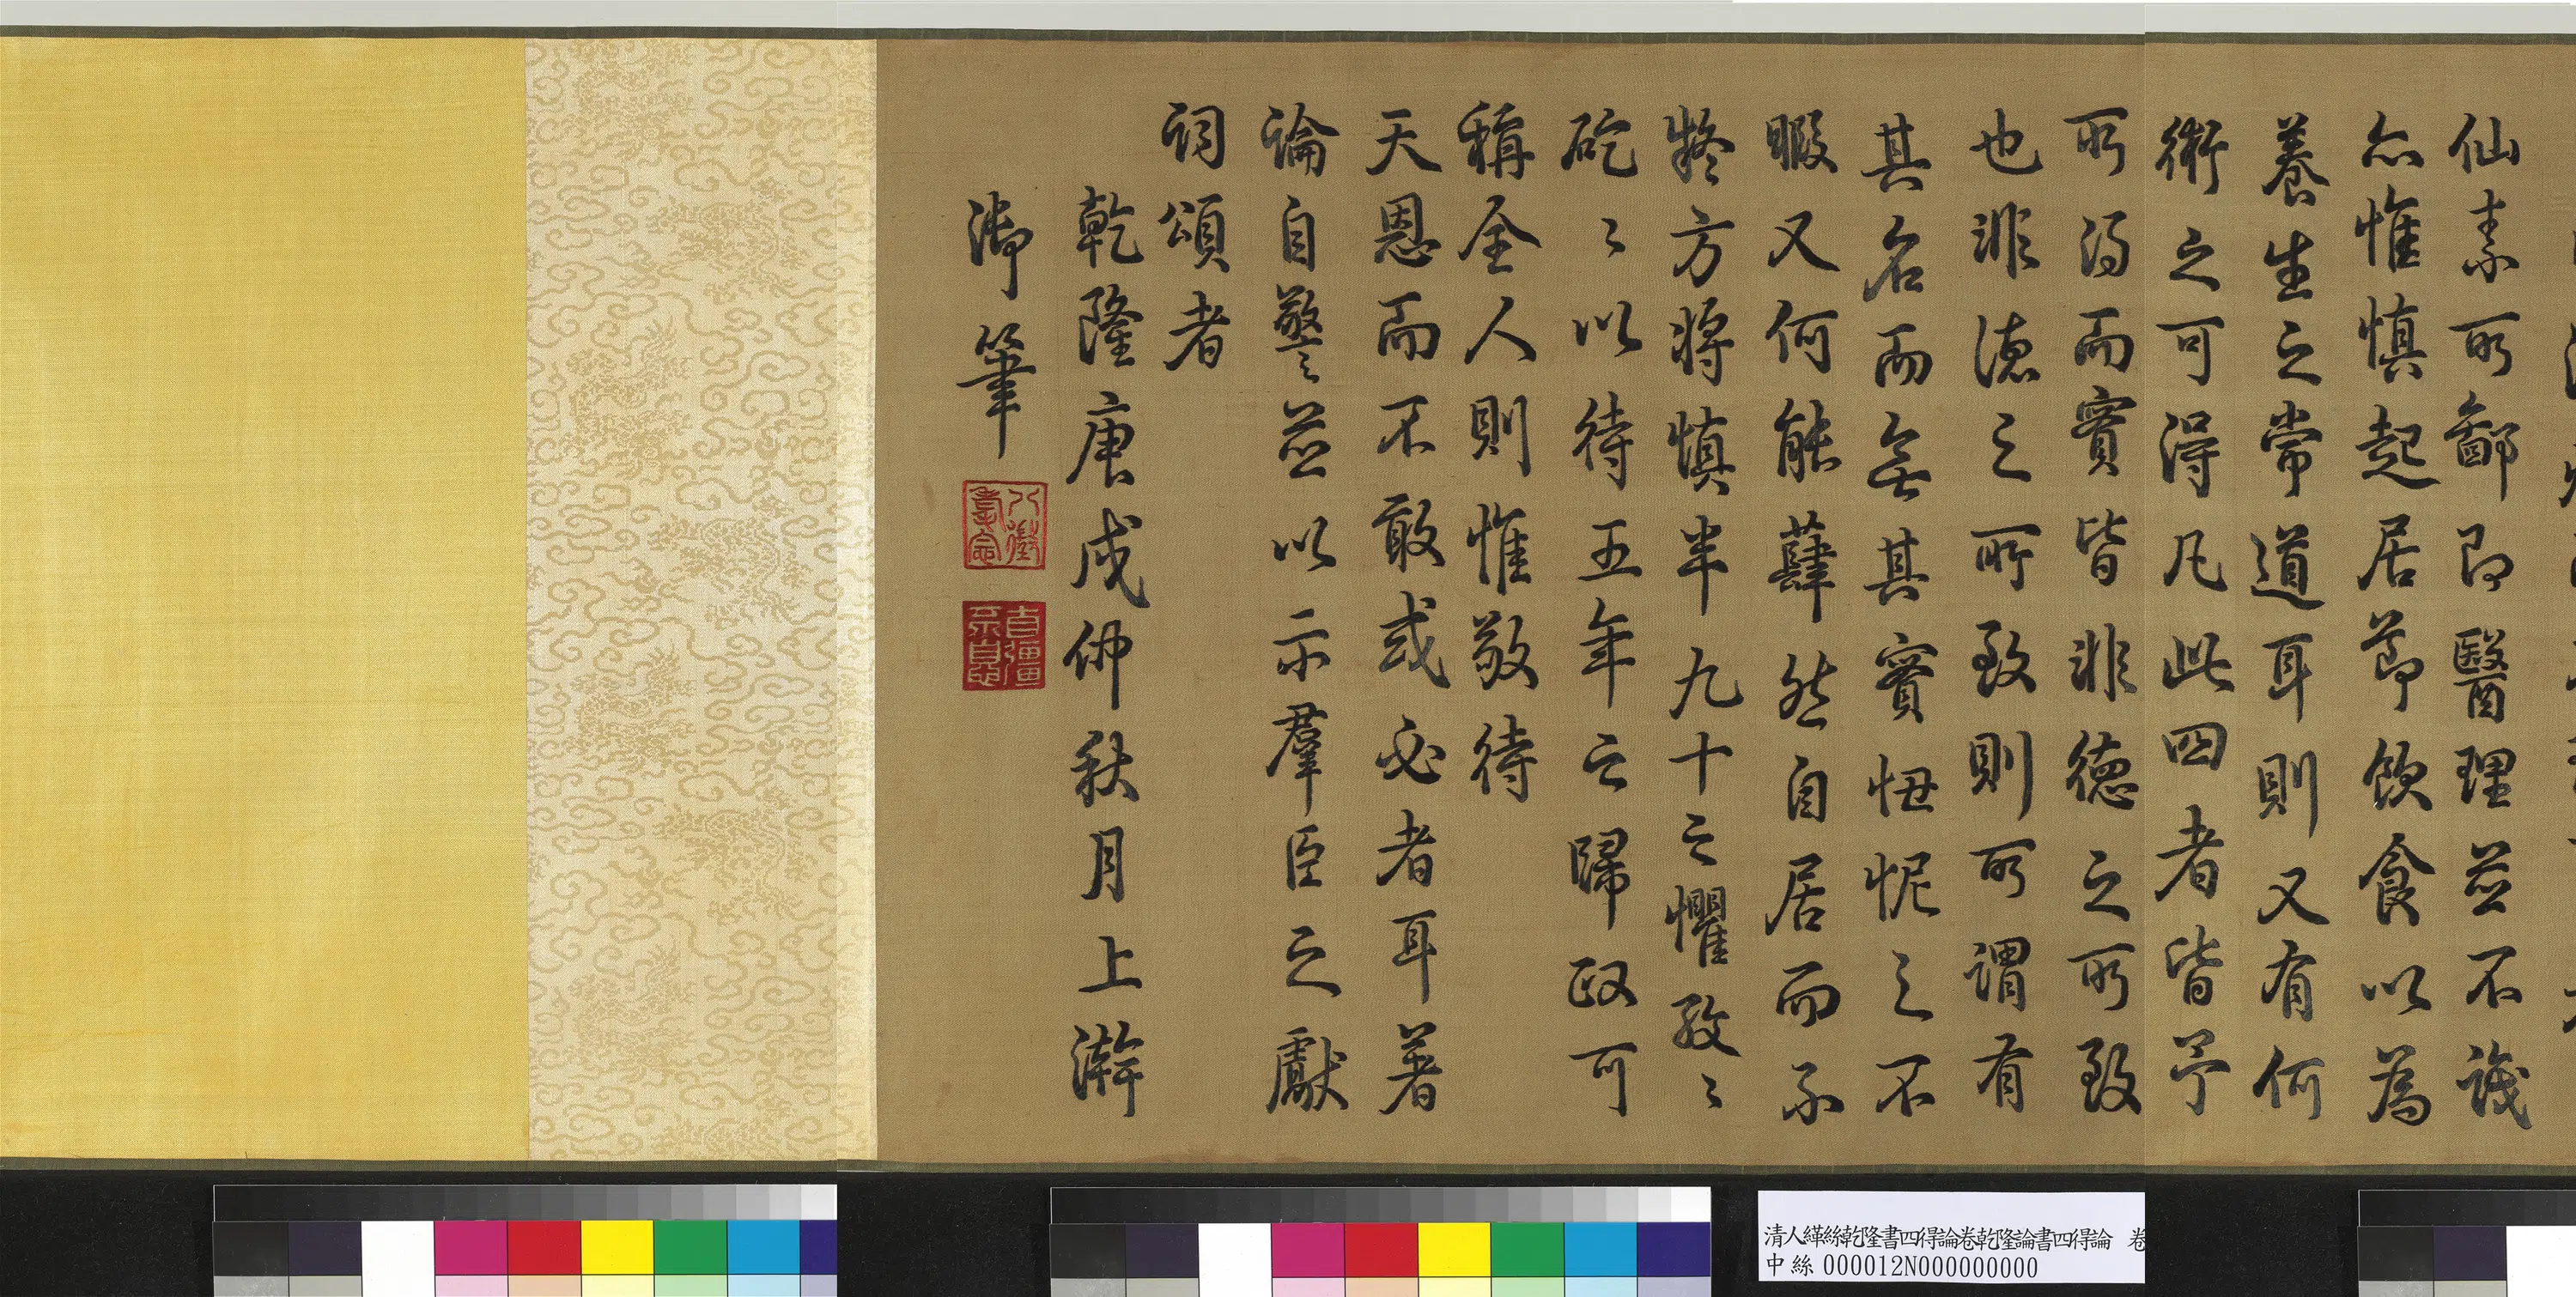 仙素所鄙即醫理並不識
亦惟慎起居節飲食以為
養生之常道耳則又有何
術之可得凡此四者皆予
所得而實皆非德之所致
也非德之所致則所謂有
其名而無其實忸怩之不
暇又何能肆然自居而不
疑方將慎半九十之懼孜〻
矻〻以待五年之歸政可
稱全人則惟敬待
天恩而不敢或必者耳著
論自警並以示羣臣之獻
詞頌者
乾隆庚戌仲秋月上澣
御筆
八徵耄念
自彊不息
清人緙絲乾隆書四得論卷乾隆論書四得論 卷
中絲000012N000000000